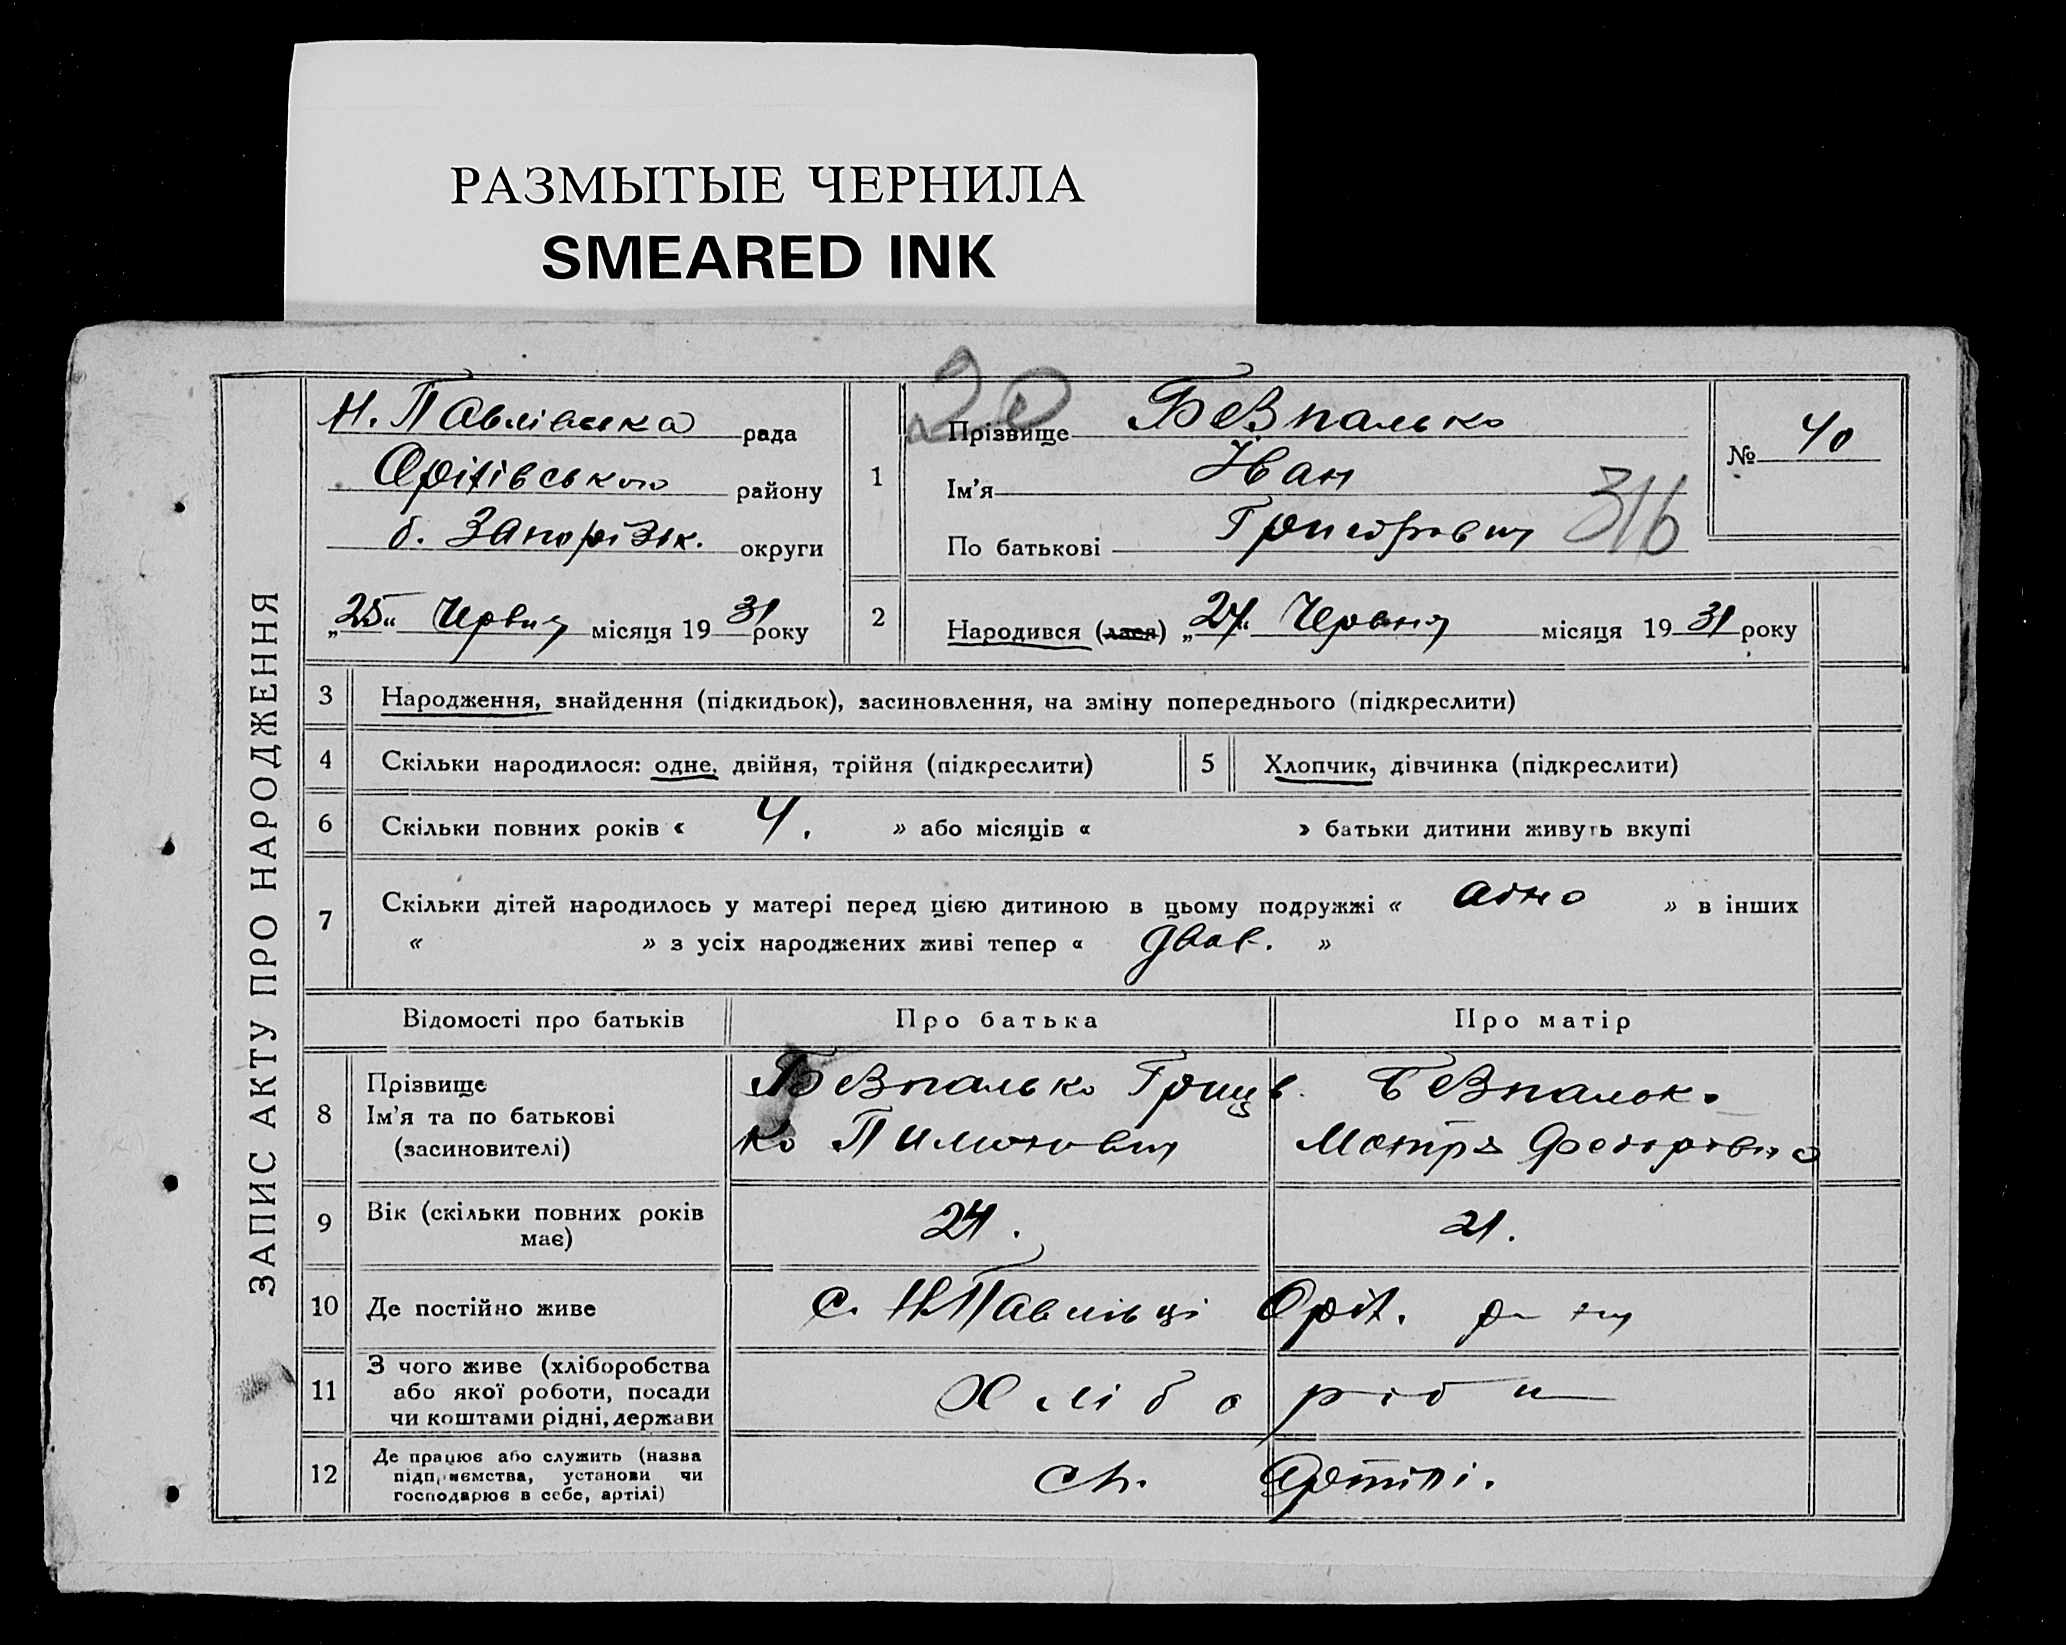 РАЗМЫТЫЕ ЧЕРНИЛА
SMEARED INK
20
ЗАПИС АКТУ ПРО НАРОДЖЕННЯ
Н. Павлівська рада
Оріхівського району
б. Запоріжк. округи
„25“ Червня місяця 1931 року
1 Прізвище Безпалько
Ім'я Іван
По батькові Григорович
316
№ 40
2 Народився (лася) „24“ Червня місяця 1931 року
3 Народження, знайдення (підкидьок), засиновлення, на зміну попереднього (підкреслити)
4 Скільки народилося: одне, двійня, трійня (підкреслити)
5 Хлопчик, дівчинка (підкреслити)
6 Скільки повних років « 4. » або місяців « » батьки дитини живуть вкупі
7 Скільки дітей народилось у матері перед цією дитиною в цьому подружжі « одно » в інших
« » з усіх народжених живі тепер « двоє. »
Відомості про батьків Про батька Про матір
8 Прізвище
Ім'я та по батькові
(засиновителі)
Безпалько Гриць
ко Пимонович
Безпальк.
Мотря Федоровна
9 Вік (скільки повних років
має)
24. 21.
10 Де постійно живе с. Н Павлівці Оріх. р-ну
11 З чого живе (хліборобства
або якої роботи, посади
чи коштами рідні, держави
Хлібороби
12 Де працює або служить (назва
підприємства, установи чи
господарює в себе, артілі)
Артілі.